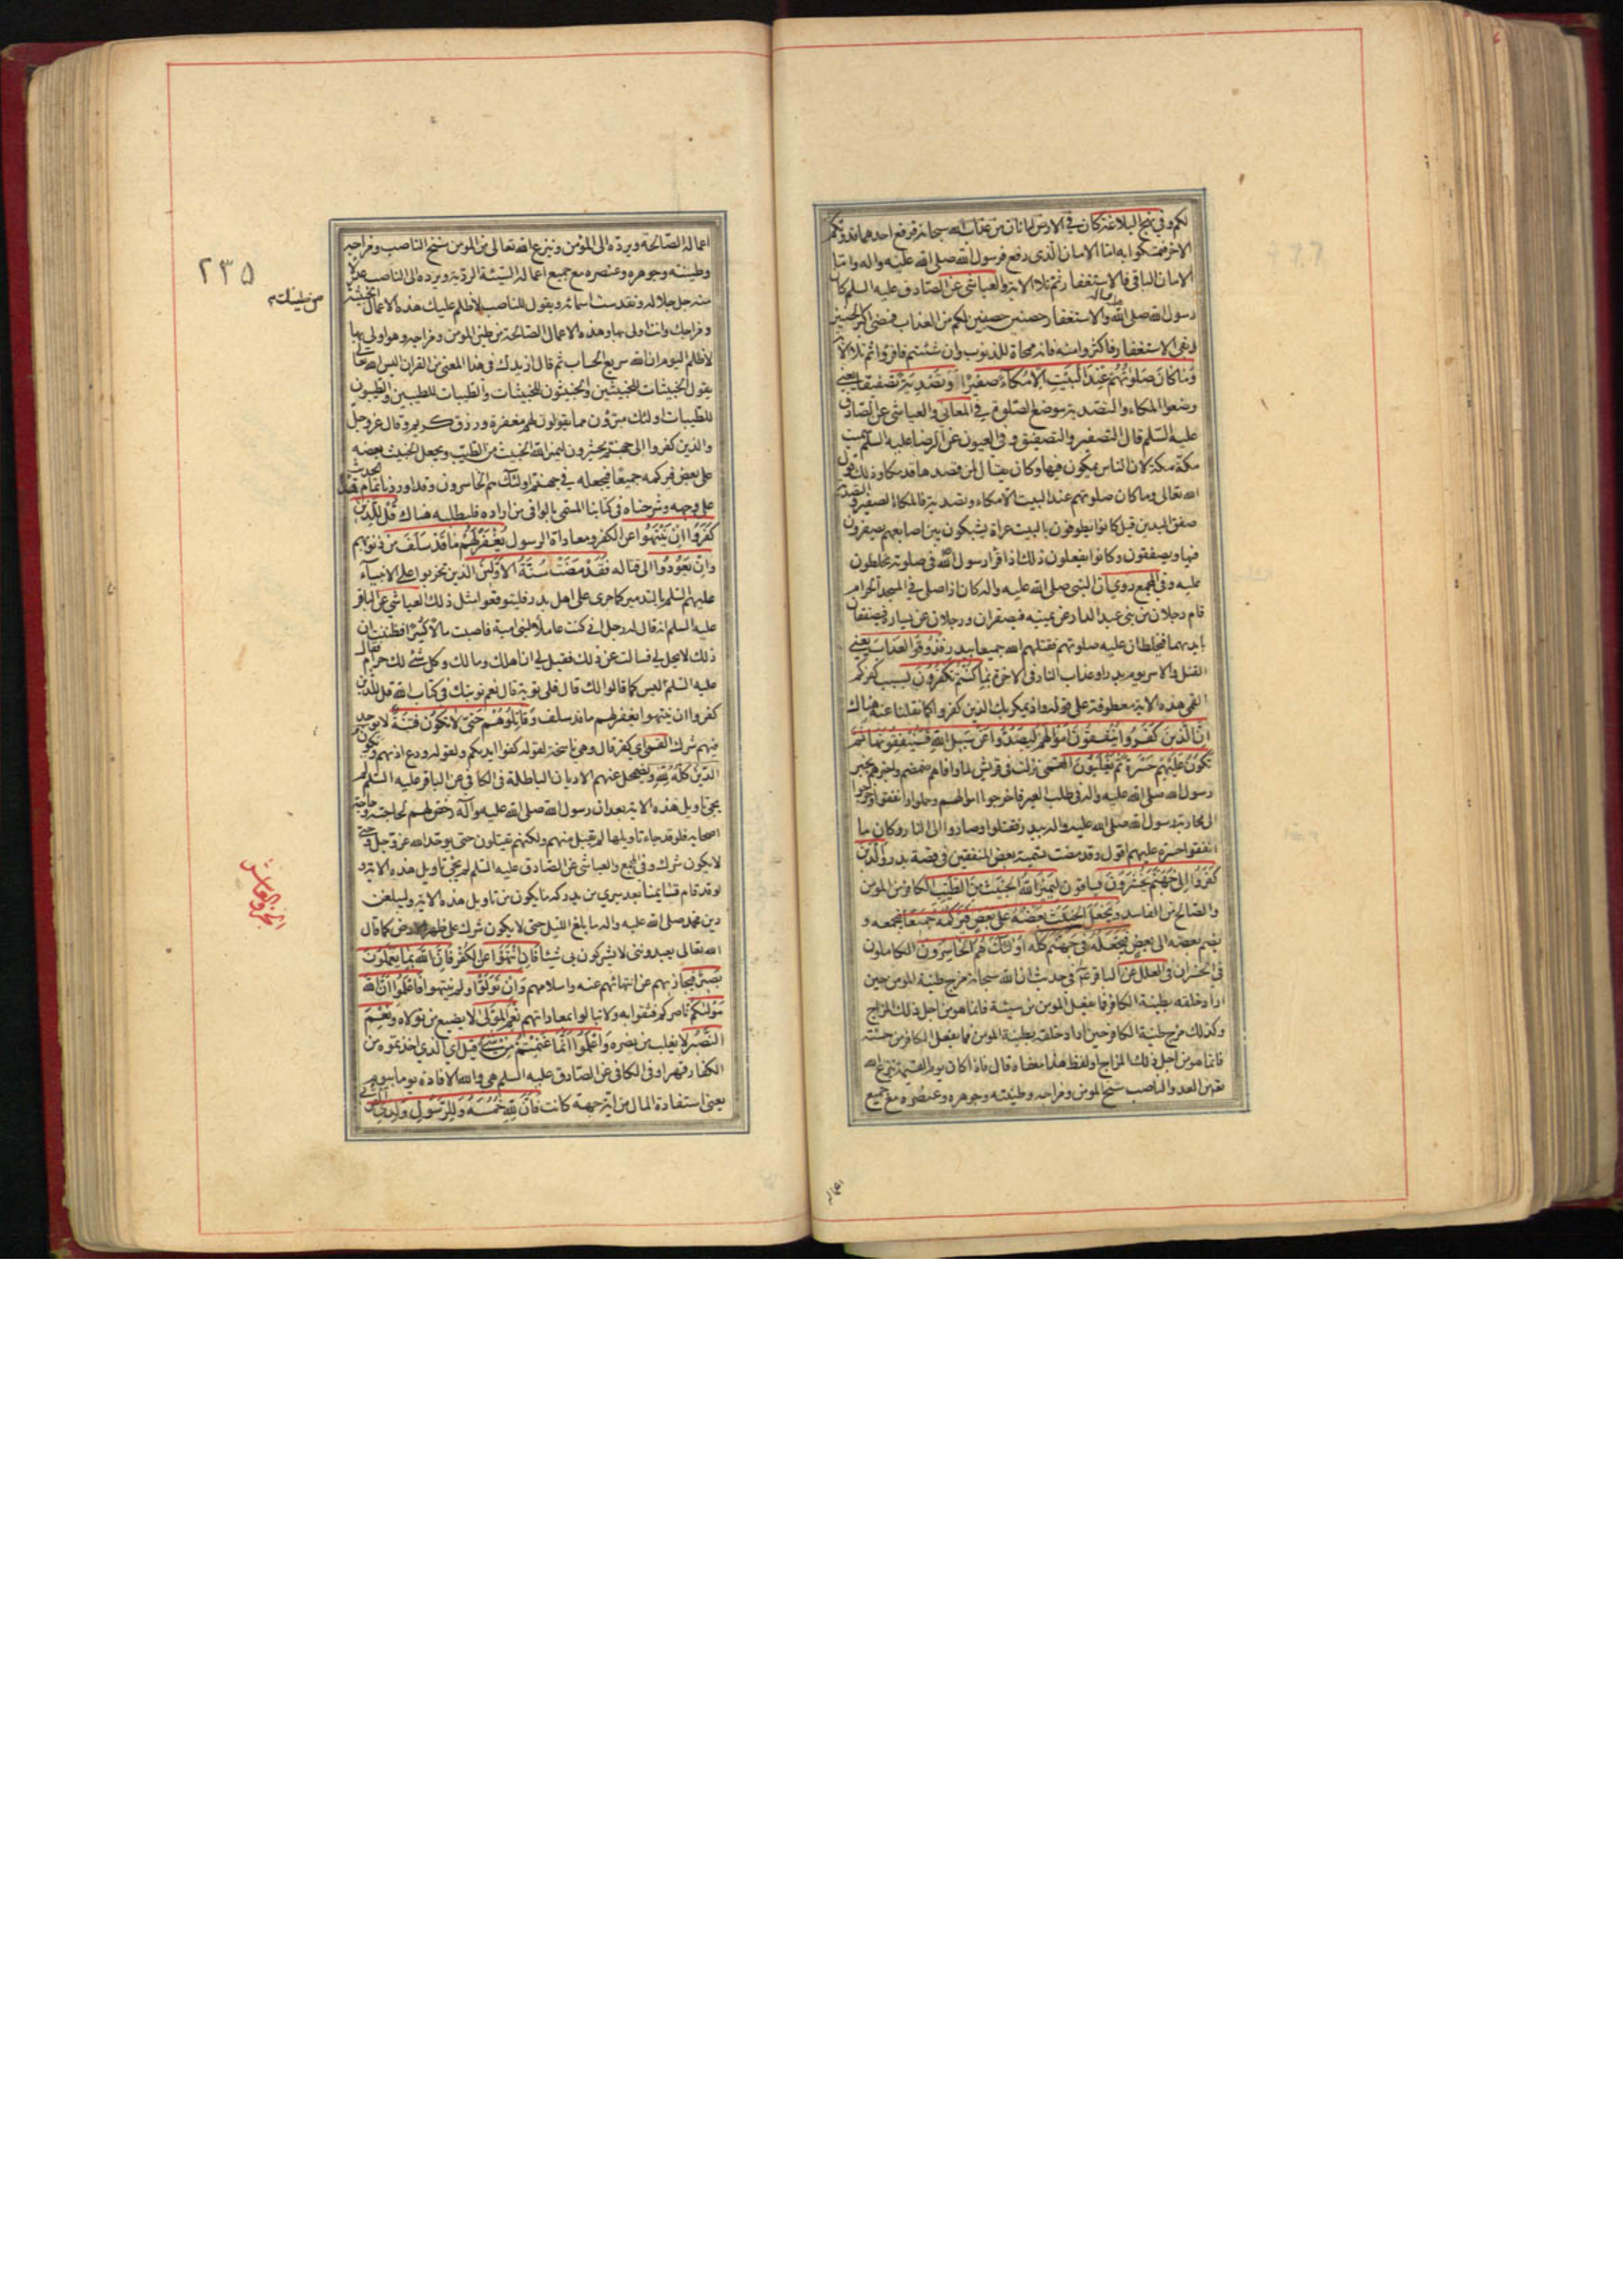 لكم وفي نهج البلاغة كان في الارض امانان من عذاب الله سبحانه فرفع احدهما فدونكم
الاخر فتمسكوا به اما الامان الذي رفع فرسول الله صلى الله عليه واله واما
الامان الباقي فالاستغفار ثم تلا الاية والعياشي عن الصادق عليه السلم كان
رسول الله صلى الله عليه واله والاستغفار حصنين حصينين لكم من العذاب فمضى اكبر الحصنين
وبقي الاستغفار فاكثروا منه فانه ممحاة للذنوب وان شئتم فاقرؤا ثم تلا الاية
وَمَا كَانَ صَلوتُهُمْ عِنْدَ الْبَيْتِ اِلَّا مُكَآءً صفيرا وَتَصْدِيَةً تصفيقا يعني
وضعوا المكاء والتصدية موضع الصلوة في المعاني والعياشي عن الصادق
عليه السلم قال التصفير والتصفيق وفي العيون عن الرضا عليه السلم سميت
مكة مكة لان الناس يمكون فيها وكان يقال لمن قصدها قد مكا وذلك قول
الله تعالى وما كان صلوتهم عند البيت الا مكاء وتصدية فالمكاء الصفير والتصدية
صفق اليدين قيل كانوا يطوفون بالبيت عراة يشبكون بين اصابعهم يصفرون
فيها ويصفقون وكانوا يفعلون ذلك اذا قرأ رسول الله ص في صلوته يخلطون
عليه وفي المجمع روي ان النبي صلى الله عليه واله كان اذا صلى في المسجد الحرام
قام رجلان من بني عبد الدار عن يمينه فيصفران ورجلان عن يساره فيصفقان
بايديهما فيخلطان عليه صلوته فقتلهم الله جميعا ببدر فَذُوقُوا الْعَذَابَ يعني
القتل والاسر يوم بدر او عذاب النار في الاخرة بِمَا كُنْتُمْ تَكْفُرُونَ بسبب كفركم
القمي هذه الاية معطوفة على قوله واذ يمكر بك الذين كفروا كما نقلنا عنه هناك
اِنَّ الَّذِينَ كَفَرُوا يُنْفِقُونَ اَمْوَالَهُمْ لِيَصُدُّوا عَنْ سَبِيلِ اللهِ فَسَيُنْفِقُونَهَا ثُمَّ
تَكُونُ عَلَيْهِمْ حَسْرَةً ثُمَّ يُغْلَبُونَ القمي نزلت في قريش لما وافاهم ضمضم واخبرهم بخبر
رسول الله صلى الله عليه واله في طلب العير فاخرجوا اموالهم وحملوا وانفقوا وخرجوا
الى محاربة رسول الله صلى الله عليه واله ببدر فقتلوا وصاروا الى النار وكان ما
انفقوا حسرة عليهم اقول وقد مضت تسمية بعض المنفقين في قصة بدر وَالَّذِينَ
كَفَرُوا اِلَى جَهَنَّمَ يُحْشَرُونَ يساقون لِيَمِيزَ اللهُ الْخَبِيثَ مِنَ الطَّيِّبِ الكافر من المومن
والصالح من الفاسد وَيَجْعَلَ الْخَبِيثَ بَعْضَهُ عَلَى بَعْضٍ فَيَرْكُمَهُ جَمِيعًا فيجمعه و
يضم بعضه الى بعض فَيَجْعَلَهُ فِي جَهَنَّمَ كله اُولئِكَ هُمُ الْخَاسِرُونَ الكاملون
في الخسران في العلل عن الباقر ع في حديث ان الله سبحانه مزج طينة المومن حين
اراد خلقه بطينة الكافر فما يفعل المومن من سيئة فانما هو من اجل ذلك المزاج
وكذلك مزج طينة الكافر حين اراد خلقه بطينة المومن فما يفعل الكافر من حسنة
فانما هو من اجل ذلك المزاج او لفظ هذا معناه قال فاذا كان يوم القيمة ينزع الله
تعالى من العدو الناصب سنخ المومن ومزاجه وطينته وجوهره وعنصره مع جميع
اعماله
٢٣٥
اعماله الصالحة ويرده الى المؤمن وينزع الله تعالى من المومن سنخ الناصب ومزاجه
وطينته وجوهره وعنصره مع جميع اعماله السيئة الردية ويرده الى الناصب عدلا
منه جل جلاله وتقدست اسمائه ويقول للناصب لا ظلم عليك هذه الاعمال الخبيثة
من طينتك
ومزاجك وانت اولى بها وهذه الاعمال الصالحة من طين المومن ومزاجه وهو اولى بها
لا ظلم اليوم ان الله سريع الحساب ثم قال ازيدك في هذا المعنى من القران اليس الله تعالى
يقول الخبيثات للخبيثين والخبيثون للخبيثات والطيبات للطيبين والطيبون
للطيبات اولئك مبرؤن مما يقولون لهم مغفرة ورزق كريم وقال عز وجل
والذين كفروا الى جهنم يحشرون ليميز الله الخبيث من الطيب ويجعل الخبيث بعضه
على بعض فيركمه جميعا فيجعله في جهنم اولئك هم الخاسرون وقد اوردنا تمام الحديث
على وجهه وشرحناه في كتابنا المسمى بالوافي من اراده فليطلبه هناك قُلْ لِلَّذِينَ
كَفَرُوا اِنْ يَنْتَهُوا عن الكفر ومعاداة الرسول يُغْفَرْ لَهُمْ مَا قَدْ سَلَفَ من ذنوبهم
وَاِنْ يَعُودُوا الى قتاله فَقَدْ مَضَتْ سُنَّةُ الْاَوَّلِينَ الذين تحزبوا على الانبياء
عليهم السلم بالتدمير كما جرى على اهل بدر فليتوقعوا مثل ذلك العياشي عن الباقر
عليه السلم انه قال له رجل اني كنت عاملا لبني امية فاصبت مالا كثيرا فظننت ان
ذلك لا يحل لي فسالت عن ذلك فقيل لي ان اهلك ومالك وكل شئ لك حرام فقال
عليه السلم ليس كما قالوا لك قال فلي توبة قال نعم توبتك في كتاب الله قل للذين
كفروا ان ينتهوا يغفر لهم ما قد سلف وَقَاتِلُوهُمْ حَتَّى لَا تَكُونَ فِتْنَةٌ لا يوجد
فيهم شرك القمي اي كفر قال وهي ناسخة لقوله كفوا ايديكم ولقوله ودع اذيهم وَيَكُونَ
الدِّينُ كُلُّهُ لِلّهِ ويضمحل عنهم الاديان الباطلة في الكافي عن الباقر عليه السلم لم
يجئ تاويل هذه الاية بعد ان رسول الله صلى الله عليه واله رخص لهم لحاجته وحاجة
اصحابه فلو قد جاء تاويلها لم يقبل منهم ولكنهم يقتلون حتى يوحد الله عز وجل وحتى
لا يكون شرك وفي المجمع والعياشي عن الصادق عليه السلم لم يجئ تاويل هذه الاية و
لو قد قام قائمنا بعد سيرى من يدركه ما يكون من تاويل هذه الاية وليبلغن
دين محمد صلى الله عليه واله ما بلغ الليل حتى لا يكون شرك على ظهر الارض كما قال
الله تعالى يعبدونني لا يشركون بي شيئا فَاِنِ انْتَهَوْا عن الكفر فَاِنَّ اللهَ بِمَا يَعْمَلُونَ
بَصِيرٌ فيجازيهم عن انتهائهم عنه واسلامهم وَاِنْ تَوَلَّوْا ولم ينتهوا فَاعْلَمُوا اَنَّ اللهَ
مَوْليكُمْ ناصركم فثقوا به ولا تبالوا بمعاداتهم نِعْمَ الْمَوْلَى لا يضيع من تولاه وَنِعْمَ
النَّصِيرُ لا يغلب من نصره وَاعْلَمُوا اَنَّمَا غَنِمْتُمْ مِنْ شَيْءٍ قيل اي الذي اخذتموه من
الكفار قهرا وفي الكافي عن الصادق عليه السلم هي والله الافادة يوما بيوم
يعني استفادة المال من اية جهة كانت فَاَنَّ لِلّهِ خُمُسَهُ وَلِلرَّسُولِ وَلِذِي الْقُرْبَى